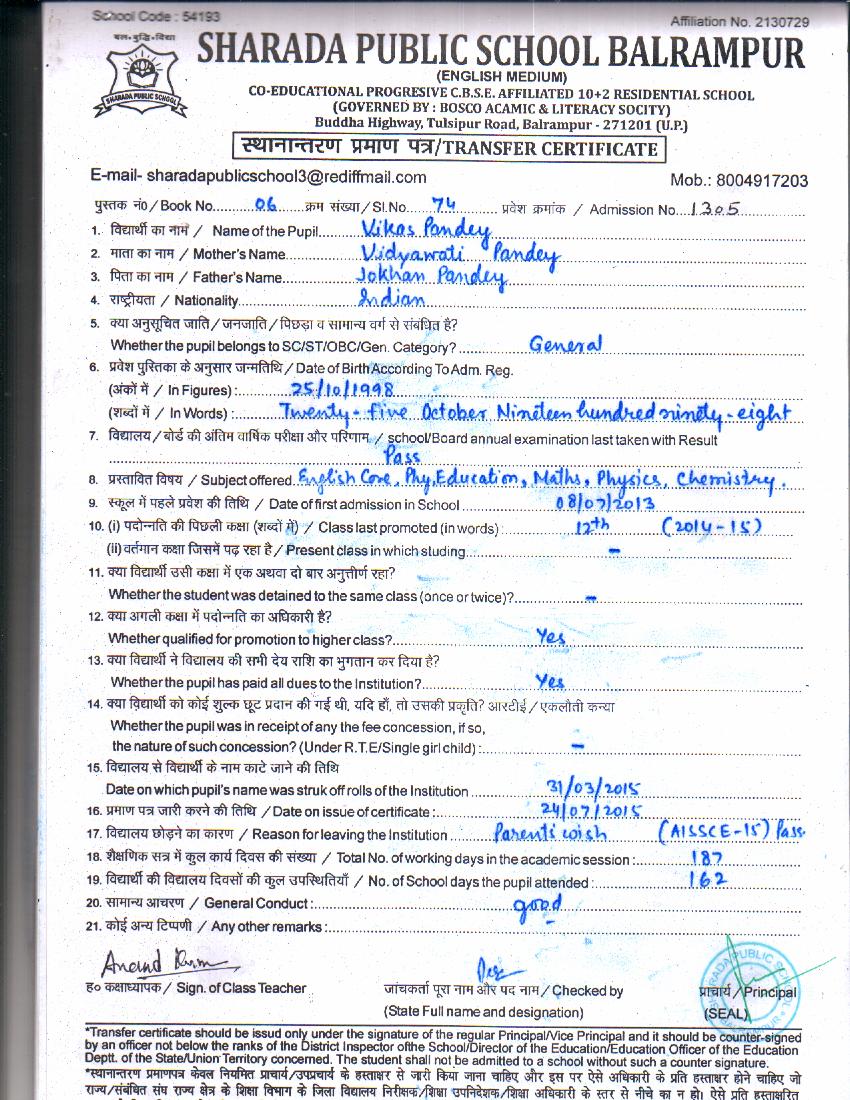 School Code : 54193
Affiliation No. 2130729
बल-बुद्धि-विद्या
SHARADA PUBLIC SCHOOL
SHARADA PUBLIC SCHOOL BALRAMPUR
(ENGLISH MEDIUM)
CO-EDUCATIONAL PROGRESIVE C.B.S.E. AFFILIATED 10+2 RESIDENTIAL SCHOOL
(GOVERNED BY : BOSCO ACAMIC & LITERACY SOCITY)
Buddha Highway, Tulsipur Road, Balrampur - 271201 (U.P.)
स्थानान्तरण प्रमाण पत्र/TRANSFER CERTIFICATE
E-mail- sharadapublicschool3@rediffmail.com Mob.: 8004917203
पुस्तक नं0/Book No. 06 क्रम संख्या/Sl.No. 74 प्रवेश क्रमांक / Admission No. 1305
1. विद्यार्थी का नाम / Name of the Pupil Vikas Pandey
2. माता का नाम / Mother's Name Vidyawati Pandey
3. पिता का नाम / Father's Name Jokhan Pandey
4. राष्ट्रीयता / Nationality Indian
5. क्या अनुसूचित जाति/जनजाति/पिछड़ा व सामान्य वर्ग से संबंधित है?
Whether the pupil belongs to SC/ST/OBC/Gen. Category? General
6. प्रवेश पुस्तिका के अनुसार जन्मतिथि/Date of Birth According To Adm. Reg.
(अंकों में / In Figures) : 25/10/1998
(शब्दों में / In Words) : Twenty-five October Nineteen hundred ninety-eight
7. विद्यालय/बोर्ड की अंतिम वार्षिक परीक्षा और परिणाम/ school/Board annual examination last taken with Result
Pass
8. प्रस्तावित विषय / Subject offered. English Core, Phy. Education, Maths, Physics, Chemistry.
9. स्कूल में पहले प्रवेश की तिथि / Date of first admission in School 08/07/2013
10. (i) पदोन्नति की पिछली कक्षा (शब्दों में) / Class last promoted (in words) : 12th (2014-15)
(ii) वर्तमान कक्षा जिसमें पढ़ रहा है / Present class in which studing -
11. क्या विद्यार्थी उसी कक्षा में एक अथवा दो बार अनुत्तीर्ण रहा?
Whether the student was detained to the same class (once or twice)? -
12. क्या अगली कक्षा में पदोन्नति का अधिकारी है?
Whether qualified for promotion to higher class? Yes
13. क्या विद्यार्थी ने विद्यालय की सभी देय राशि का भुगतान कर दिया है?
Whether the pupil has paid all dues to the Institution? Yes
14. क्या विद्यार्थी को कोई शुल्क छूट प्रदान की गई थी, यदि हाँ, तो उसकी प्रकृति? आरटीई/एकलौती कन्या
Whether the pupil was in receipt of any the fee concession, if so,
the nature of such concession? (Under R.T.E/Single girl child) : -
15. विद्यालय से विद्यार्थी के नाम काटे जाने की तिथि
Date on which pupil's name was struk off rolls of the Institution 31/03/2015
16. प्रमाण पत्र जारी करने की तिथि / Date on issue of certificate : 24/07/2015
17. विद्यालय छोड़ने का कारण / Reason for leaving the Institution Parents wish (AISSCE-15) Pass
18. शैक्षणिक सत्र में कुल कार्य दिवस की संख्या / Total No. of working days in the academic session : 187
19. विद्यार्थी की विद्यालय दिवसों की कुल उपस्थितियाँ / No. of School days the pupil attended : 162
20. सामान्य आचरण / General Conduct : good
21. कोई अन्य टिप्पणी / Any other remarks : -
ह० कक्षाध्यापक / Sign. of Class Teacher जांचकर्ता पूरा नाम और पद नाम / Checked by प्राचार्य / Principal
(State Full name and designation) (SEAL)
*Transfer certificate should be issud only under the signature of the regular Principal/Vice Principal and it should be counter-signed
by an officer not below the ranks of the District Inspector ofthe School/Director of the Education/Education Officer of the Education
Deptt. of the State/Union Territory concerned. The student shall not be admitted to a school without such a counter signature.
*स्थानान्तरण प्रमाणपत्र केवल नियमित प्राचार्य/उपप्रचार्य के हस्ताक्षर से जारी किया जाना चाहिए और इस पर ऐसे अधिकारी के प्रति हस्ताक्षर होने चाहिए जो
राज्य/संबंधित संघ राज्य क्षेत्र के शिक्षा विभाग के जिला विद्यालय निरीक्षक/शिक्षा उपनिदेशक/शिक्षा अधिकारी के स्तर से नीचे का न हो। ऐसे प्रति हस्ताक्षरित